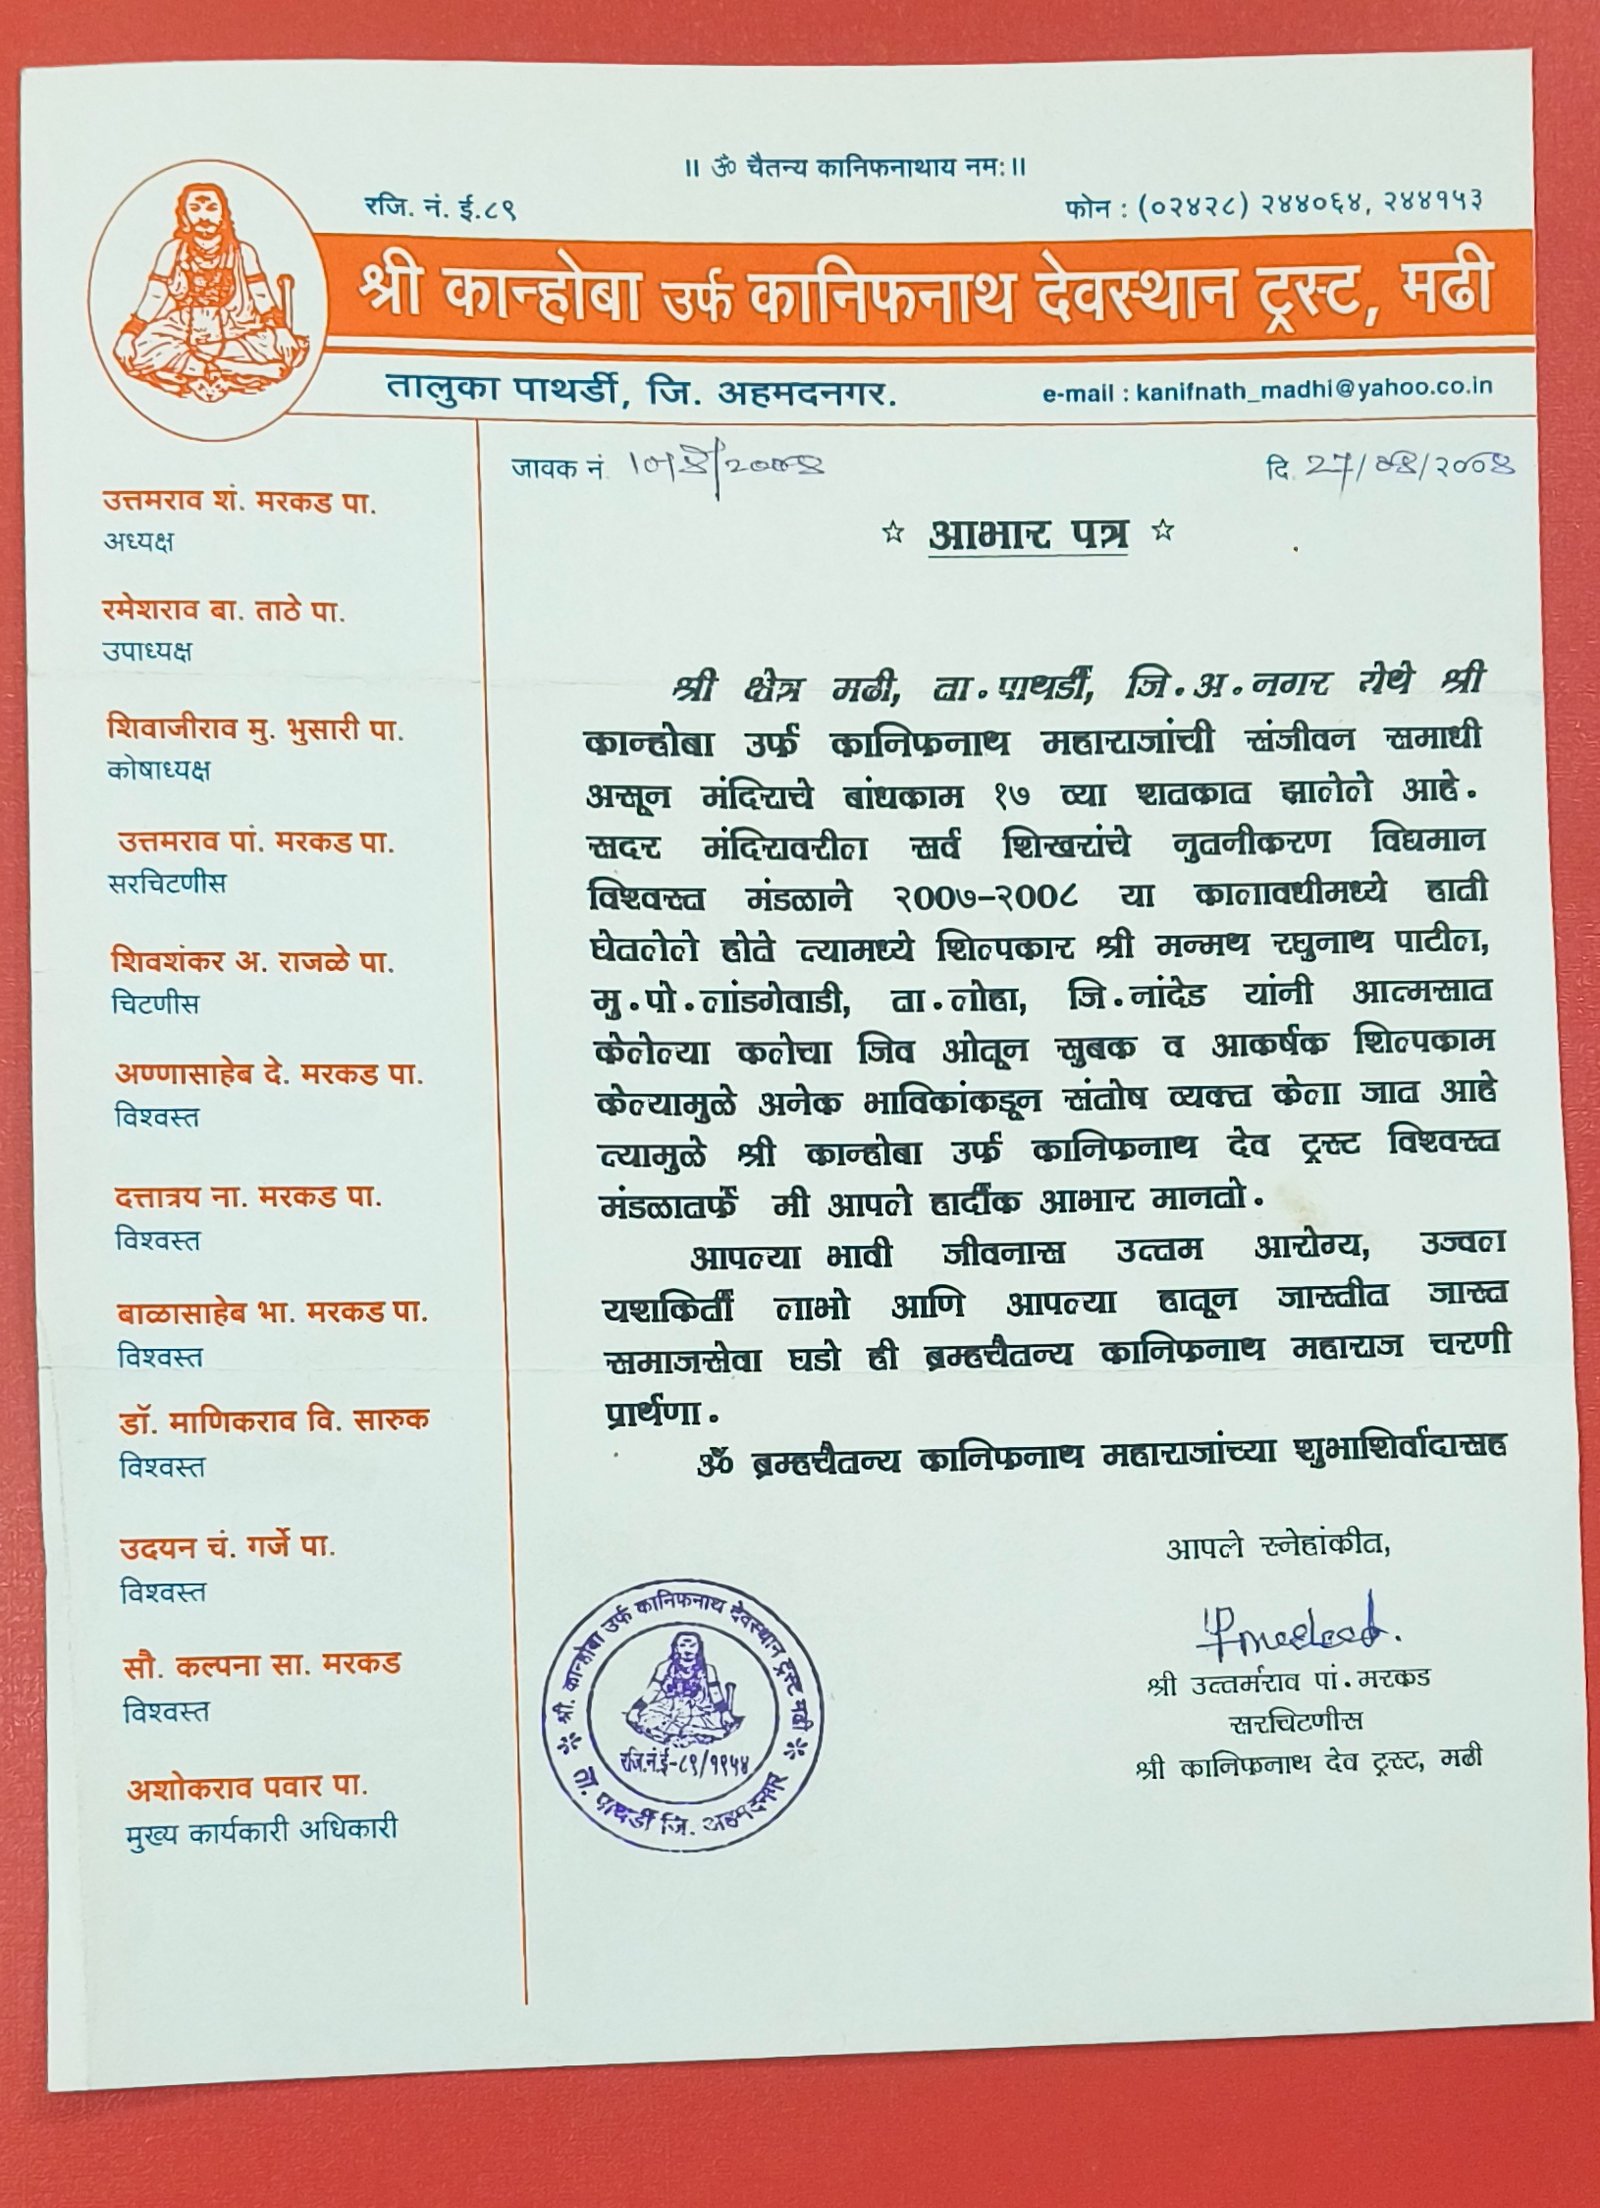 ।। ॐ चैतन्य कानिफनाथाय नम:।।
रजि. नं. ई.८९
फोन : (०२४२८) २४४०६४, २४४१५३
श्री कान्होबा उर्फ कानिफनाथ देवस्थान ट्रस्ट, मढी
तालुका पाथर्डी, जि. अहमदनगर.
e-mail : kanifnath_madhi@yahoo.co.in
जावक नं.
दि. 27/
उत्तमराव शं. मरकड पा.
अध्यक्ष
रमेशराव बा. ताठे पा.
उपाध्यक्ष
शिवाजीराव मु. भुसारी पा.
कोषाध्यक्ष
उत्तमराव पां. मरकड पा.
सरचिटणीस
शिवशंकर अ. राजळे पा.
चिटणीस
अण्णासाहेब दे. मरकड पा.
विश्वस्त
दत्तात्रय ना. मरकड पा.
विश्वस्त
बाळासाहेब भा. मरकड पा.
विश्वस्त
डॉ. माणिकराव वि. सारुक
विश्वस्त
उदयन चं. गर्जे पा.
विश्वस्त
सौ. कल्पना सा. मरकड
विश्वस्त
अशोकराव पवार पा.
मुख्य कार्यकारी अधिकारी
☆ आभार पत्र ☆
श्री क्षेत्र मढी, ता.पाथर्डी, जि.अ.नगर येथे श्री
कान्होबा उर्फ कानिफनाथ महाराजांची संजीवन समाधी
असून मंदिराचे बांधकाम १७ व्या शतकात झालेले आहे.
सदर मंदिरावरील सर्व शिखरांचे नुतनीकरण विद्यमान
विश्वस्त मंडळाने २००७-२००८ या कालावधीमध्ये हाती
घेतलेले होते त्यामध्ये शिल्पकार श्री मन्मथ रघुनाथ पाटील,
मु.पो.लांडगेवाडी, ता.लोहा, जि.नांदेड यांनी आत्मसात
केलेल्या कलेचा जिव ओतून सुबक व आकर्षक शिल्पकाम
केल्यामुळे अनेक भाविकांकडून संतोष व्यक्त केला जात आहे
त्यामुळे श्री कान्होबा उर्फ कानिफनाथ देव ट्रस्ट विश्वस्त
मंडळातर्फे मी आपले हार्दीक आभार मानतो.
आपल्या भावी जीवनास उत्तम आरोग्य, उज्वल
यशकिर्ती लाभो आणि आपल्या हातून जास्तीत जास्त
समाजसेवा घडो ही ब्रम्हचैतन्य कानिफनाथ महाराज चरणी
प्रार्थणा.
ॐ ब्रम्हचैतन्य कानिफनाथ महाराजांच्या शुभाशिर्वादासह
आपले स्नेहांकीत,
श्री उत्तर्मराव पां.मरकड
सरचिटणीस
श्री कानिफनाथ देव ट्रस्ट, मढी
श्री. कान्होबा उर्फ कानिफनाथ देवस्थान ट्रस्ट मढी
रजि.नं.ई-८९/१९५४
ता. पाथर्डी जि. अहमदनगर